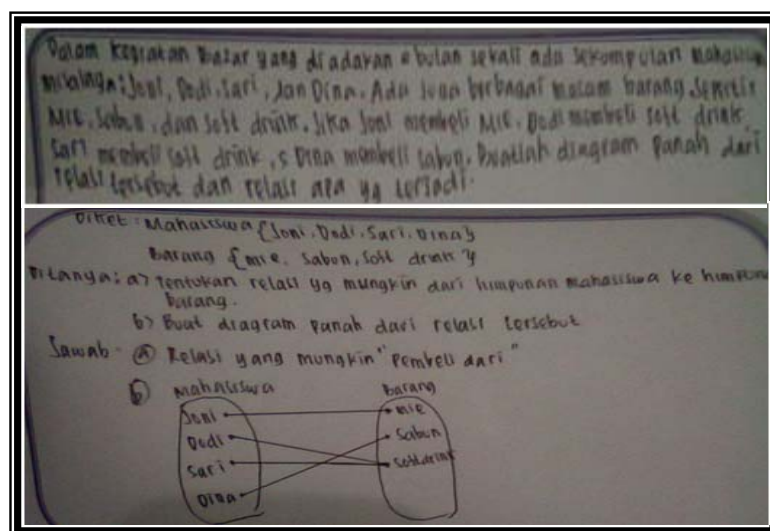 Dalam kegiatan Bazar yang di adakan sebulan sekali ada sekumpulan mahasiswa
misalnya: Joni, Dodi, Sari, Dan Dina. Ada juga berbagai macam barang seperti
Mie, Sabun, dan soft drink. Jika Joni membeli Mie, Dodi membeli soft drink,
Sari membeli soft drink, s Dina membeli sabun. Buatlah diagram panah dari
relasi tersebut dan relasi apa yg terjadi.
Diket : Mahasiswa {Joni, Dodi, Sari, Dina}
Barang {mie, sabun, soft drink}
Ditanya: a) Tentukan relasi yg mungkin dari himpunan mahasiswa ke himpunan
barang.
b) Buat diagram panah dari relasi tersebut
Jawab : a Relasi yang mungkin "Pembeli dari"
b Mahasiswa Barang
Joni mie
Dodi Sabun
Sari softdrink
Dina